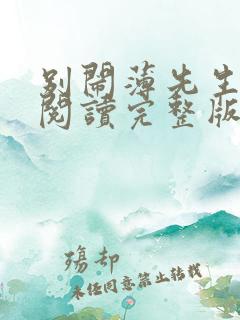 別鬧薄先生
閱讀完整版
殤却
未任同意禁止转载